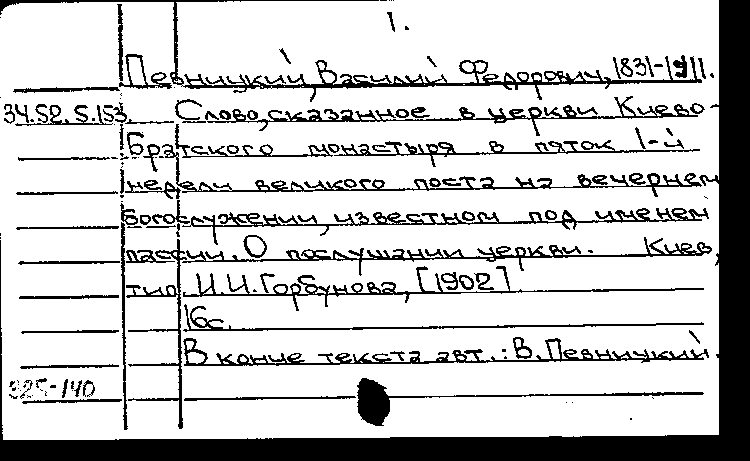 1.
Певницкий, Василий Федорович, 1831-1911.
34.52.5.153. Слово, сказанное в церкви Киево-
Братского монастыря в пяток 1-й
недели великого поста на вечернем
богослужении, известном под именем
пассии. О послушании церкви. Киев,
тип. И.И. Горбунова, [1902]
16с.
В конце текста авт.: В. Певницкий.
325-140